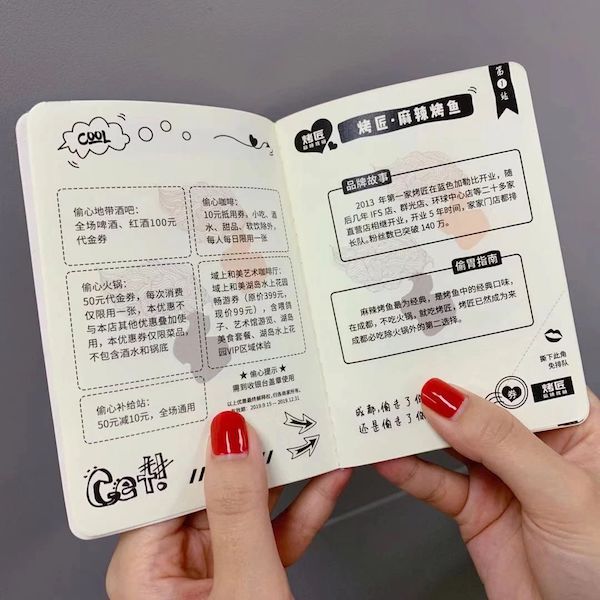 COOL
偷心地带酒吧：
全场啤酒、红酒100元
代金券
偷心咖啡：
10元抵用券，小吃、酒
水、甜品、软饮除外，
每人每日限用一张
偷心火锅：
50元代金券，每次消费
仅限用一张，本优惠不
与本店其他优惠叠加使
用，本优惠券仅限菜品，
不包含酒水和锅底
域上和美艺术咖啡厅：
域上和美湖岛水上花园
畅游券（原价399元，
现价99元），含喂鸽
子、艺术馆游览、湖岛
美食套餐、湖岛水上花
园VIP区域体验
偷心补给站：
50元减10元，全场通用
★ 偷心提示 ★
需到收银台盖章使用
以上优惠最终解释权，归各商家所有。
期：2019.9.15 -- 2019.12.31
Get!
第1站
烤匠
麻辣烤鱼
烤匠·麻辣烤鱼
品牌故事
2013 年第一家烤匠在蓝色加勒比开业，随
后几年 IFS 店、群光店、环球中心店等二十多家
直营店相继开业，开业 5 年时间，家家门店都排
长队。粉丝数已突破 140 万。
偷胃指南
麻辣烤鱼最为经典，是烤鱼中的经典口味，
在成都，不吃火锅，就吃烤匠，烤匠已然成为来
成都必吃除火锅外的第二选择。
撕下此角
免排队
成都，偷走了你
还是偷走了你
券
烤匠
麻辣烤鱼